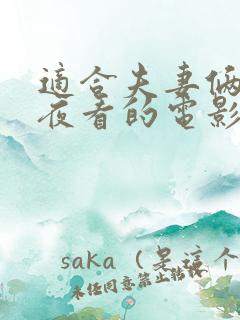 適合夫妻倆
夜看的電影
saka（是這个
未经同意禁止转载